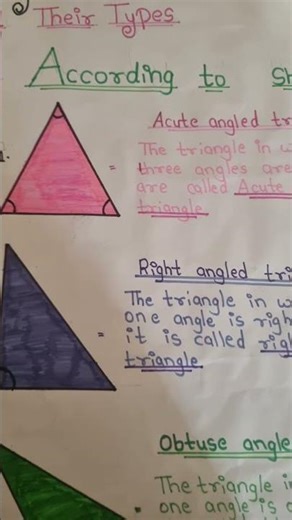 Their Types
According to Sh
1.
Acute angled tr
The triangle in w
three angles are
are called Acute
triangle
=
Right angled tri
The triangle in w
one angle is righ
it is called righ
triangle
=
Obtuse angle
The triangle i
one angle is o